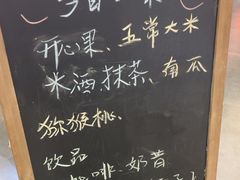 今日
开心果、五常大米
米酒、抹茶、南瓜
猕猴桃、
饮品
咖啡、奶昔